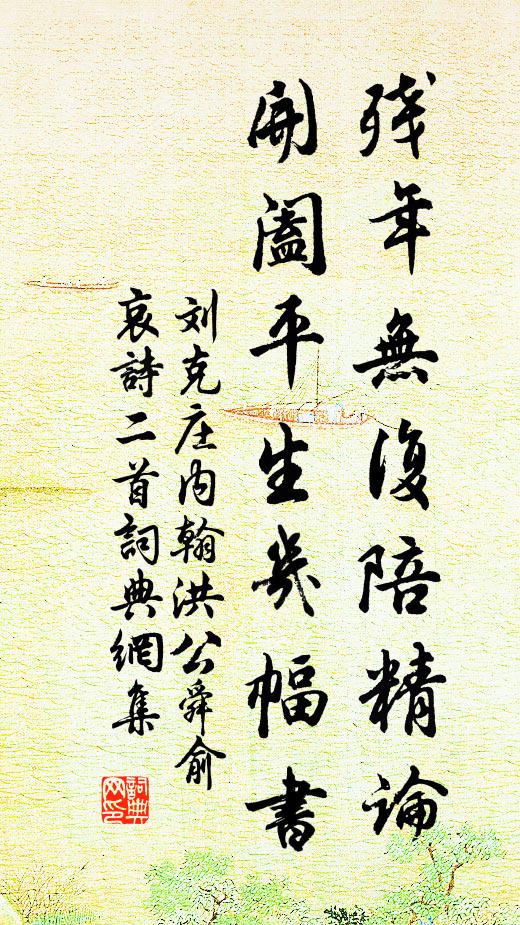 殘年無復陪精論
開闔平生幾幅書
刘克庄内翰洪公舜俞
哀詩二首詞典網集
詞典网印